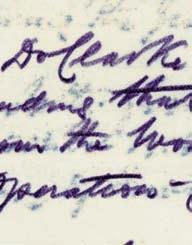 Dr Clarke
nding that
om the Wo
Operations -